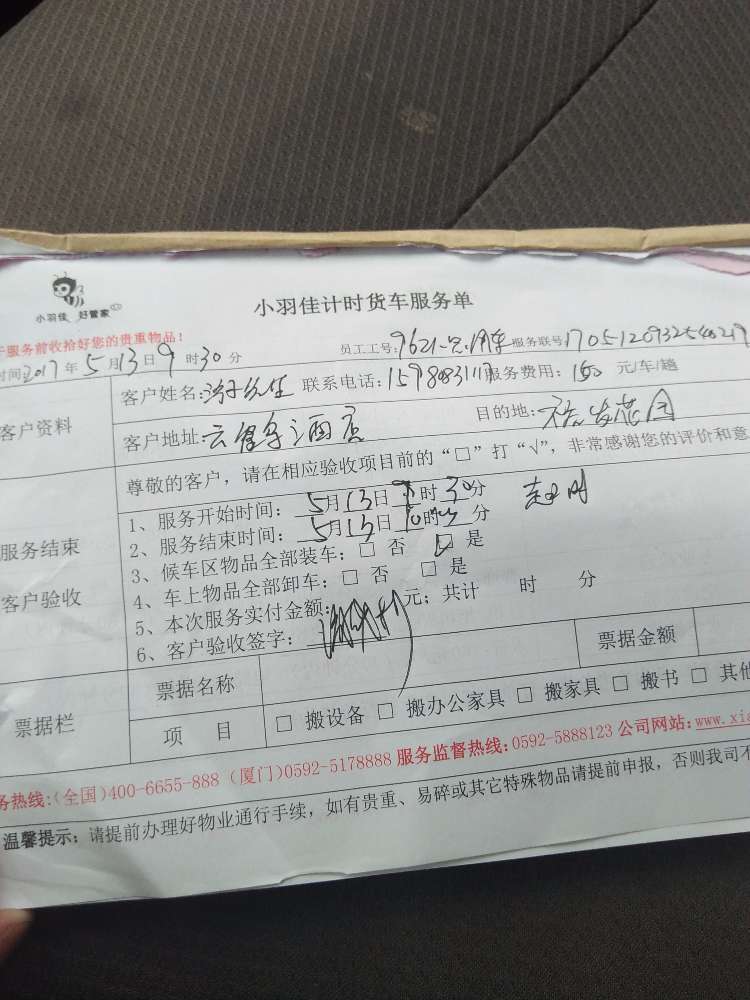 小羽佳 好管家
小羽佳计时货车服务单
服务前收拾好您的贵重物品!
时间:2017年5月13日9时30分 员工工号:9621 服务联号
客户资料 客户姓名: 联系电话: 服务费用:150元/车/趟
客户地址: 酒店 目的地: 花园
尊敬的客户,请在相应验收项目前的“□”打“√”,非常感谢您的评价和意
服务结束 客户验收
1、服务开始时间:5月13日9时30分
2、服务结束时间:5月13日10时 分
3、候车区物品全部装车:□ 否 □ 是
4、车上物品全部卸车:□ 否 □ 是
5、本次服务实付金额: 元;共计 时 分
6、客户验收签字:
票据栏 票据名称 票据金额
项 目 □ 搬设备 □ 搬办公家具 □ 搬家具 □ 搬书 □ 其他
务热线:(全国)400-6655-888 (厦门)0592-5178888 服务监督热线:0592-5888123 公司网站:www.xia
温馨提示:请提前办理好物业通行手续,如有贵重、易碎或其它特殊物品请提前申报,否则我司不